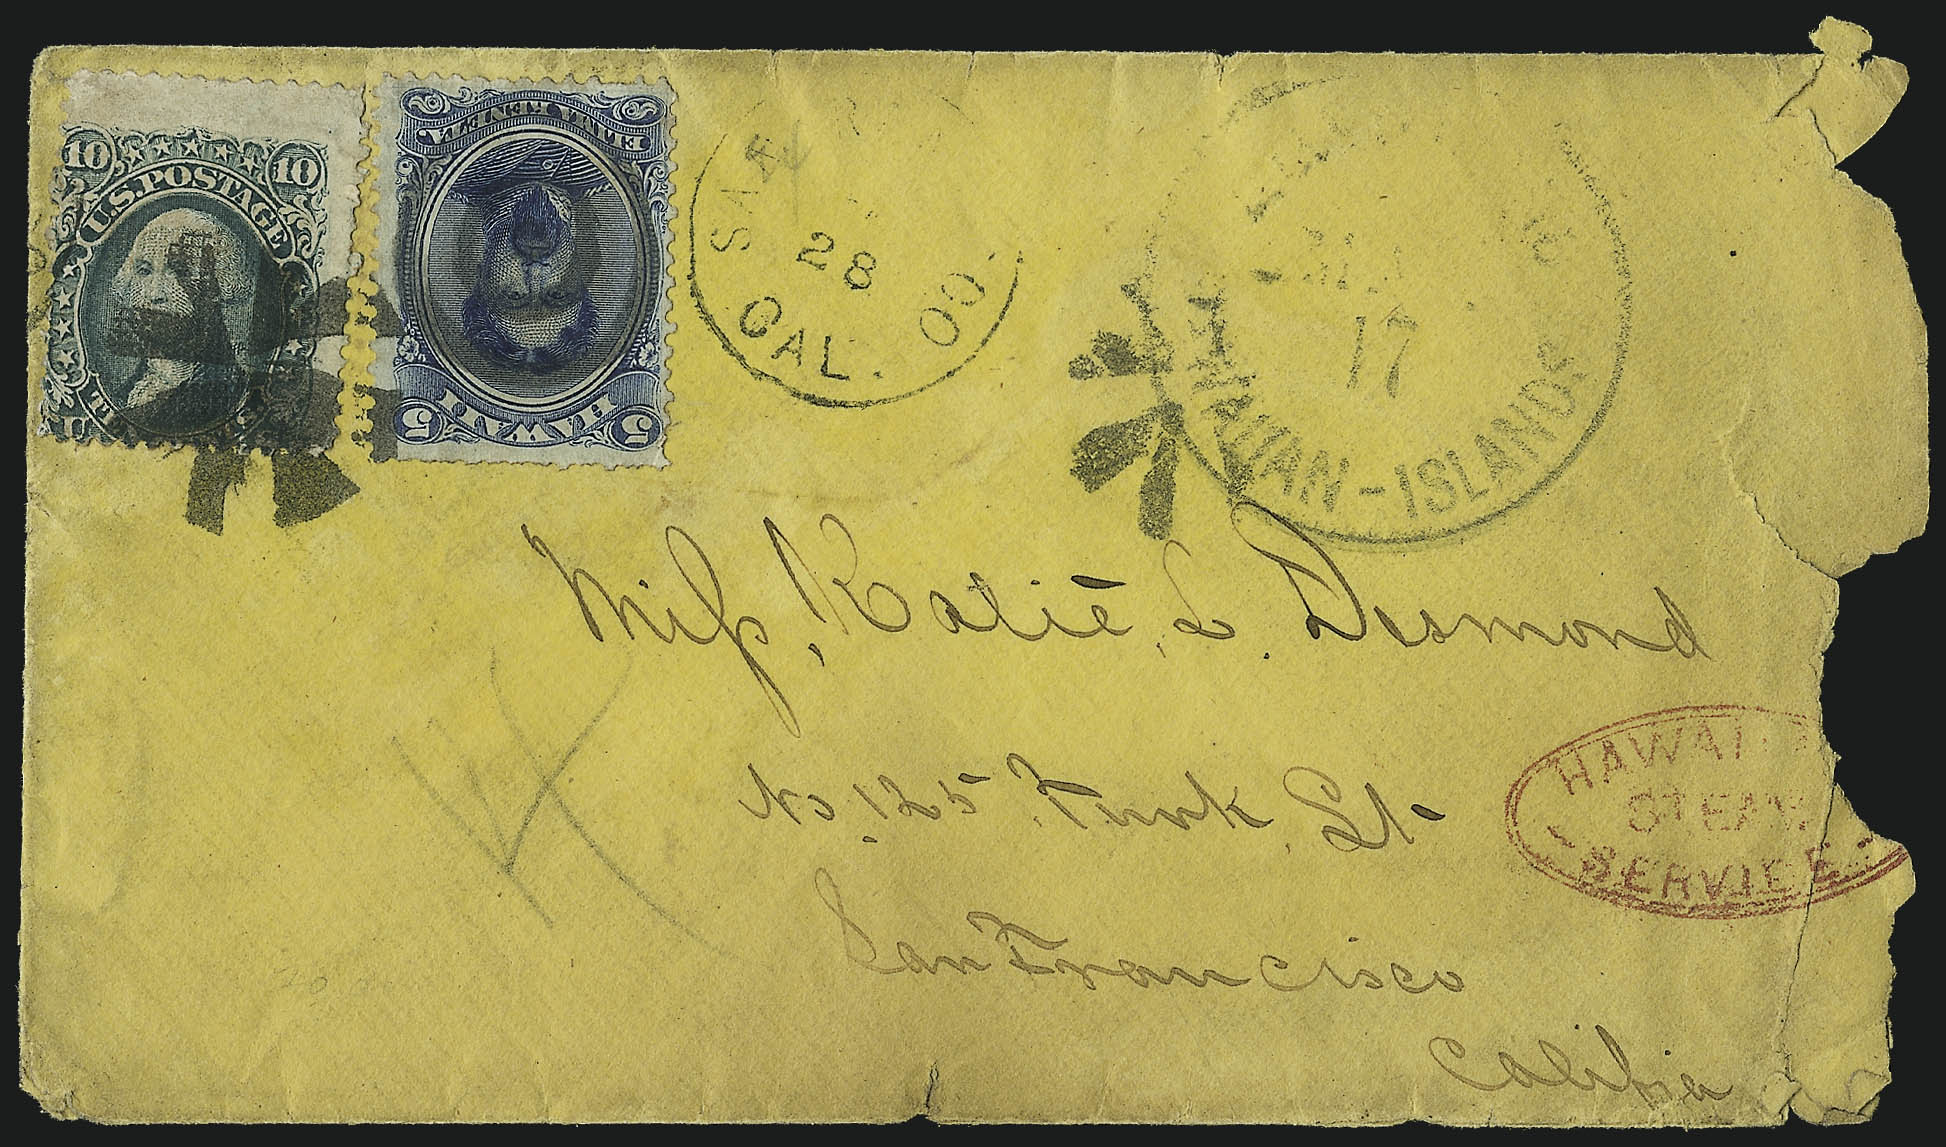 10 10
U.S. POSTAGE
ELIMA KENETA
HAWAII
5 5
SAN
28
CAL.
17
HAWAIIAN-ISLANDS
Miss, Katie, L. Desmond
No 125 Funk St.
San Francisco
Califa
HAWAI
STEAM
SERVICE